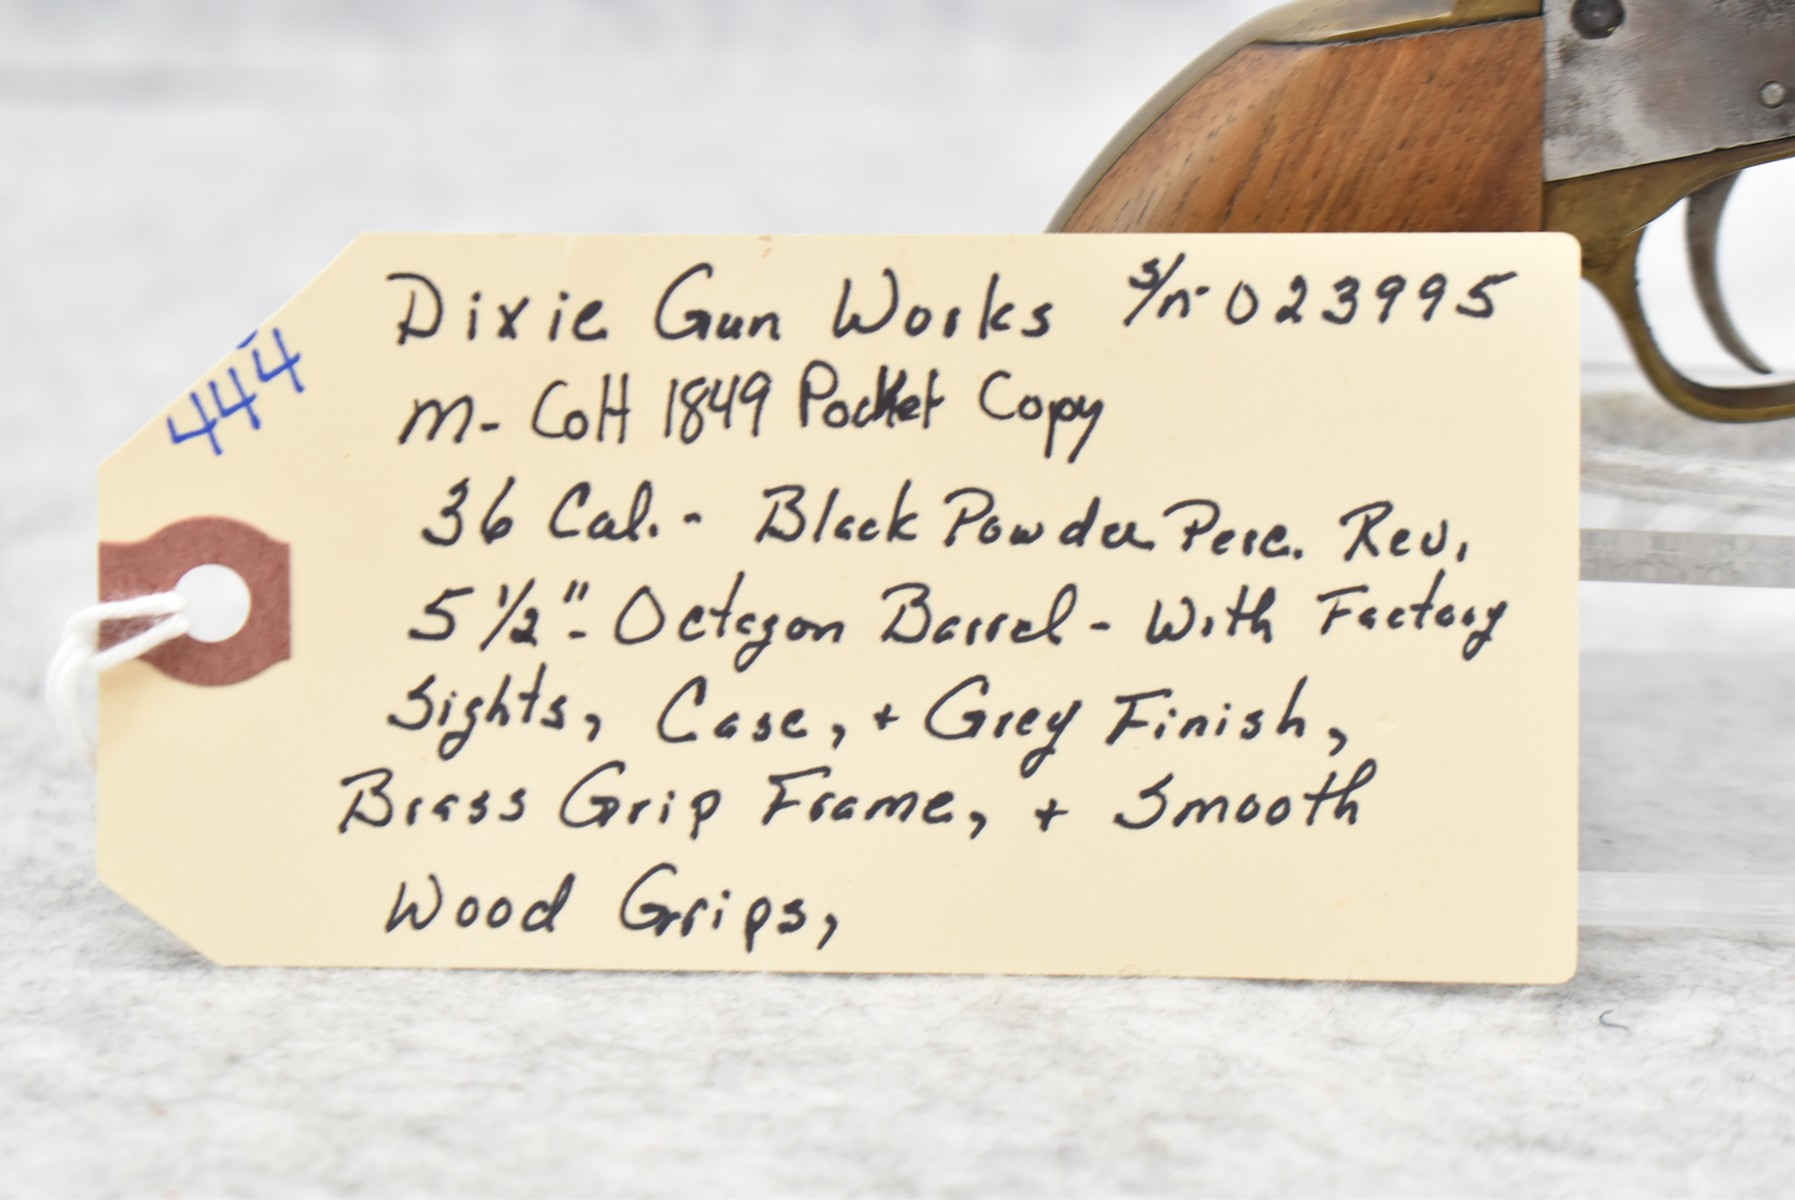 444
Dixie Gun Works S/n-023995
M- Colt 1849 Pocket Copy
36 Cal. - Black Powder Perc. Rev.
5 1/2"- Octagon Barrel - With Factory
Sights, Case, + Grey Finish,
Brass Grip Frame, + Smooth
Wood Grips,